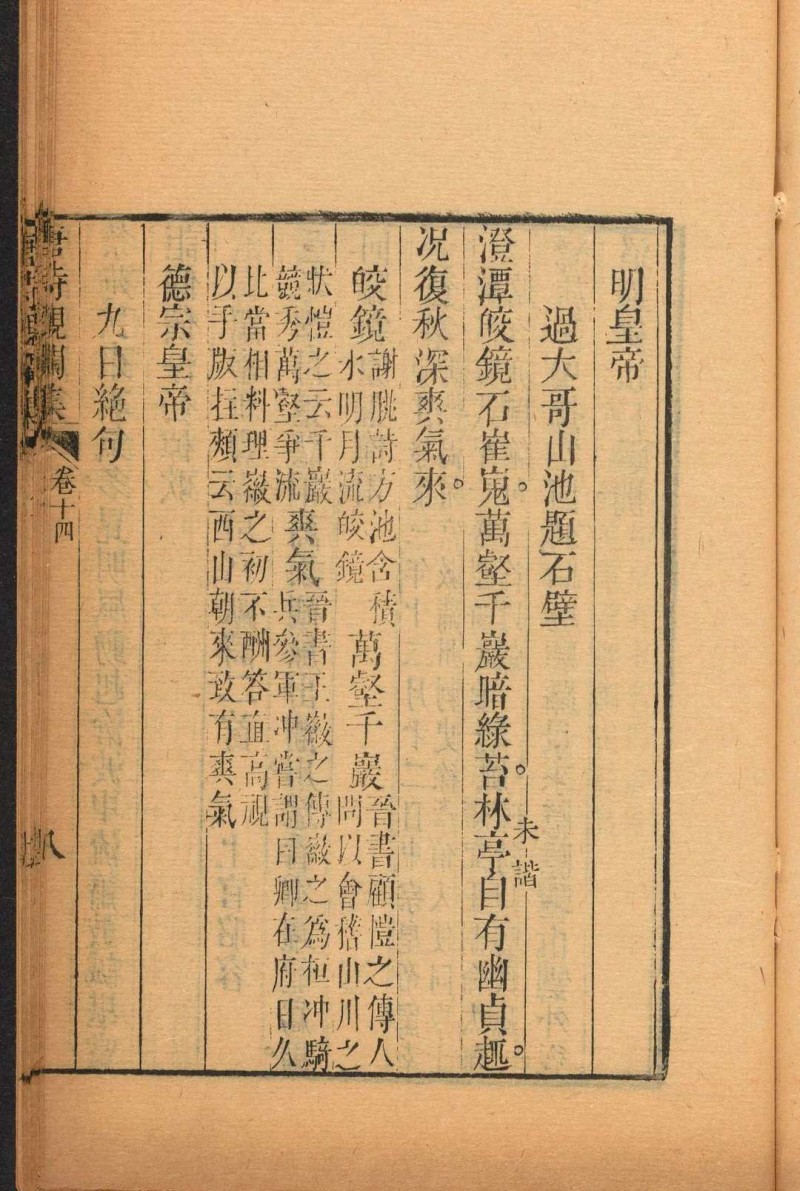 明皇帝
過大哥山池題石壁
澄潭皎鏡石崔嵬。萬壑千巖暗綠苔。林亭自有幽貞趣。
未諧
况復秋深爽氣來。
皎鏡
謝朓詩方池含積
水明月流皎鏡
萬壑千巖
晉書顧愷之傳人
問以會稽山川之
狀愷之云千巖
競秀萬壑爭流
爽氣
晉書王徽之傳徽之為桓冲騎
兵參軍冲嘗謂曰卿在府日久
比當相料理徽之初不酬答直高視
以手版拄頰云西山朝來致有爽氣
德宗皇帝
九日絕句
唐詩觀瀾集
卷十四
八